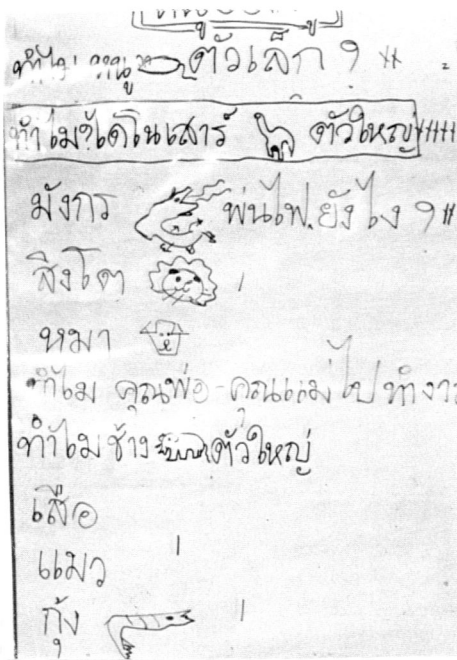 ทำไม หนู ตัวเล็ก ?
ทำไมไดโนเสาร์ ตัวใหญ่
มังกร พ่นไฟ ยังไง ?
สิงโต
หมา
ทำไม คุณพ่อ-คุณแม่ไป
ทำไมช้าง ตัวใหญ่
เสือ
แมว
กุ้ง